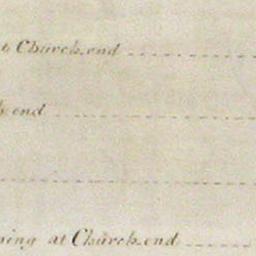 to Church end
h end
ning at Church end